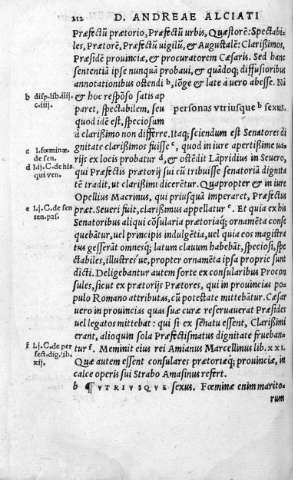 212 D. ANDREAE ALCIATI
Præfectũ prætorio, Præfectũ urbis, Quæstorẽ: Spectabi
les, Prætorẽ, Præfectũ uigilũ, & Augustalẽ: Clarissimos,
Præsidẽ prouinciæ, & procuratorem Cæsaris. Sed hanc
sententiã ipse nunquã probaui, & quãdoq; diffusioribus
annotationibus ostendi b, lõge & late à uero abesse. Ni
b disp.lib.iiij.
c.iiij.
& hoc respõso satis ap
paret, spectabilem, seu personas vtriusque b sexus.
quod idẽ est, speciosam
à clarissimo non differre. Itaq; sciendum est Senatores di
gnitate clarissimos fuisse c, quod in iure apertissime nu-
c l. fœminæ.
de sen.
ris ex locis probatur d, & ostẽdit Lãpridius in Seuero,
d l.j. C. de his
qui ven.
qui Præfectis prætorij sui eũ tribuisse senatoriã dignita
tẽ tradit, ut clarissimi dicerẽtur. Quapropter & in iure
Opellius Macrinus, qui priusquã imperaret, Præfectus
præt. Seueri fuit, clarissimus appellatur e. Et quia ex bis
e l.j. C. de sen
ten. pas.
Senatoribus aliqui cõsularia, quidã prætoria ornamẽta conse
quebãtur, uel principis indulgẽtia, uel quia eos magistra
tus gesserãt omnesq; latum clauum habebãt, speciosi, spe
ctabiles, illustresue, propter ornamẽta ipsa proprie sunt
dicti. Deligebantur autem sorte ex consularibus Procon
sules, sicut ex prætorijs Prætores, qui in prouincias po
pulo Romano attributas, cũ potestate mittebãtur. Cæsar
uero in prouincias quas suæ curæ reseruauerat Præsides
uel legatos mittebat: qui si ex senatu essent, Clarissimi
erant, alioquin sola Præfectissimatus dignitate fruebantur f.
f l.j. C. de per
fect. dig. lib.
xij.
Meminit eius rei Amianus Marcellinus lib. XXI.
Quæ autem essent consulares prætoriæq; prouinciæ, in
calce operis sui Strabo Amasinus refert.
b ¶ VTRIVSQVE sexus. Fœminæ enim marito-
rum